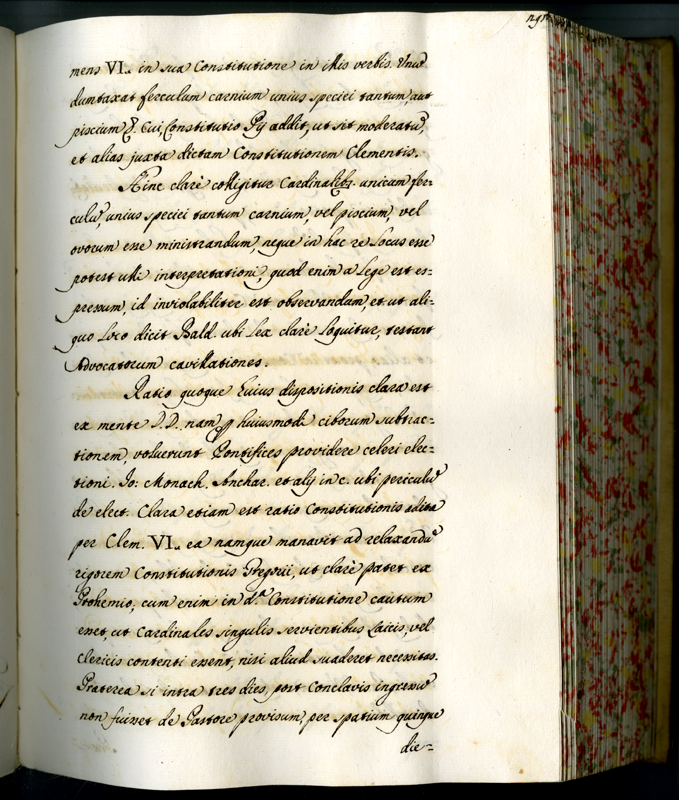 mens VI. in sua Constitutione in illis verbis. Unũ
dumtaxat ferculum carnium unius speciei tantum, aut
piscium &. Cui Constitutio Pij addit, ut sit moderatũ,
et alias juxta dictam Constitutionem Clementis.
Hinc clarè colligitur Cardinalib. unicum fer=
culũ, unius speciei tantum carnium, vel piscium, vel
ovorum esse ministrandum, neque in hac re Locus esse
potest ulli interpretationi, quod enim a Lege est es=
pressum, id inviolabiliter est observandam, et ut ali=
quo Loco dicit Bald. ubi Lex clarè Loquitur, restant
Advocatorum cavillationes.
Ratio quoque huius dispositionis clara est
ex mente D.D. nam ꝑ huiusmodi ciborum subtrac=
tionem, voluerunt Pontifices providere celeri elec=
tioni. Jo: Monach. Anchar. et alij in c. ubi periculũ
de elect. Clara etiam est ratio Constitutionis edita
per Clem. VI. ea namque manavit ad relaxandũ
rigorem Constitutionis Gregorii, ut clarè patet ex
Prohemio, cum enim in d.ta Constitutione cautum
esset, ut Cardinales singulis servientibus Laicis, vel
Clericis contenti essent, nisi aliud suaderet necessitas.
Praterea si intra tres dies, post Conclavis ingressũ
non fuisset de Pastore provisum, per spatium quinque
die=